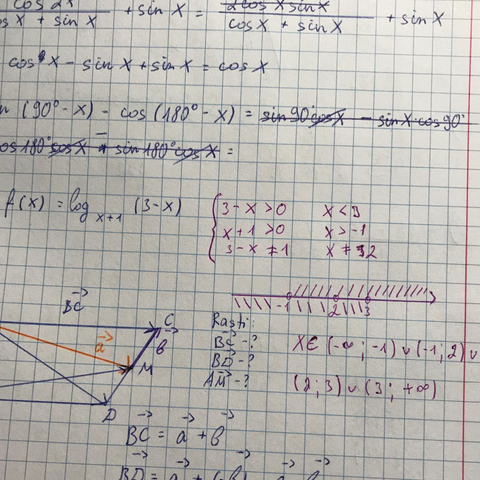 cos2x / cosx + sinx + sinx = 2cosxsinx / cosx + sinx + sinx
cos x - sinx + sinx = cosx
(90°-x) - cos(180°-x) = sin90°cosx - sinx cos90°
cos180°cosx + sin180°cosx =
f(x) = log x+1 (3-x)
3-x>0 x<3
x+1>0 x>-1
3-x≠1 x≠2
-1 2 3
BC
C
a
b
M
D
Rasti:
BC-?
BD-?
AM-?
x∈(-∞;-1)∪(-1;2)∪
(2;3)∪(3;+∞)
BC = a + b
BD = a + (-b)